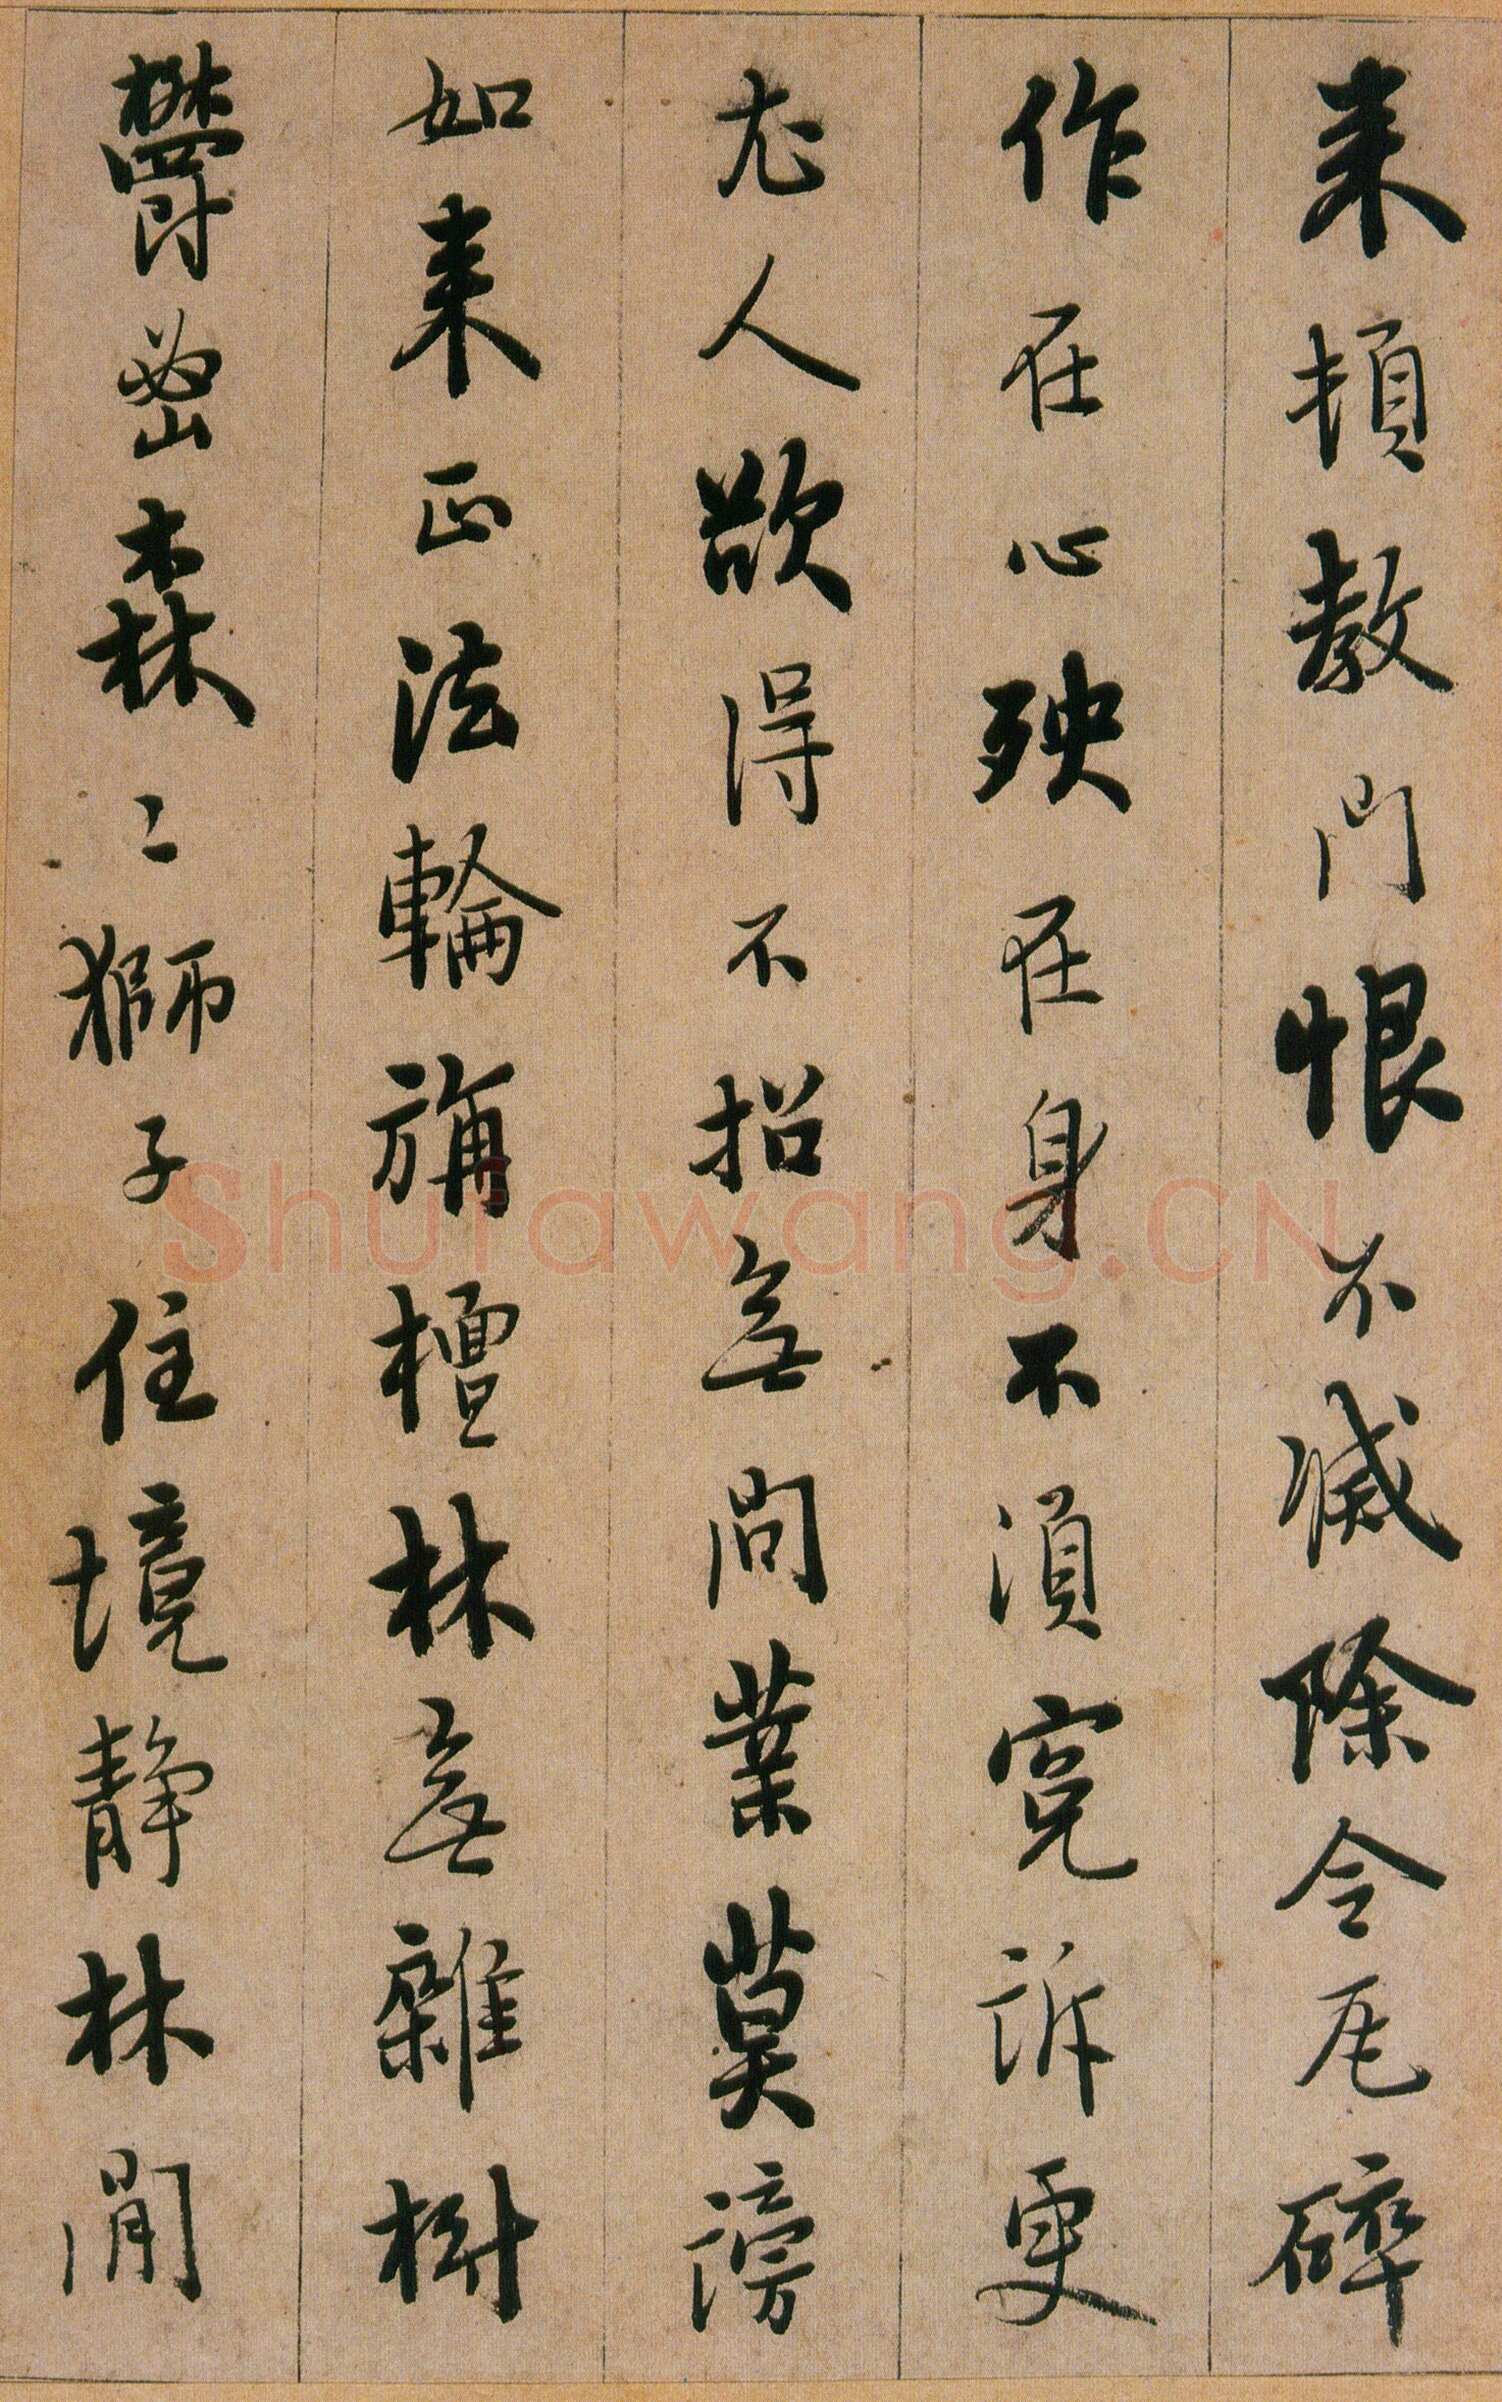 来頓教門恨不滅除令瓦碎
作在心殃在身不須冤訴更
尤人欲得不招無間業莫謗
如来正法輪旃檀林無雜樹
欝密森々獅子住境静林間
Shufawang.CN